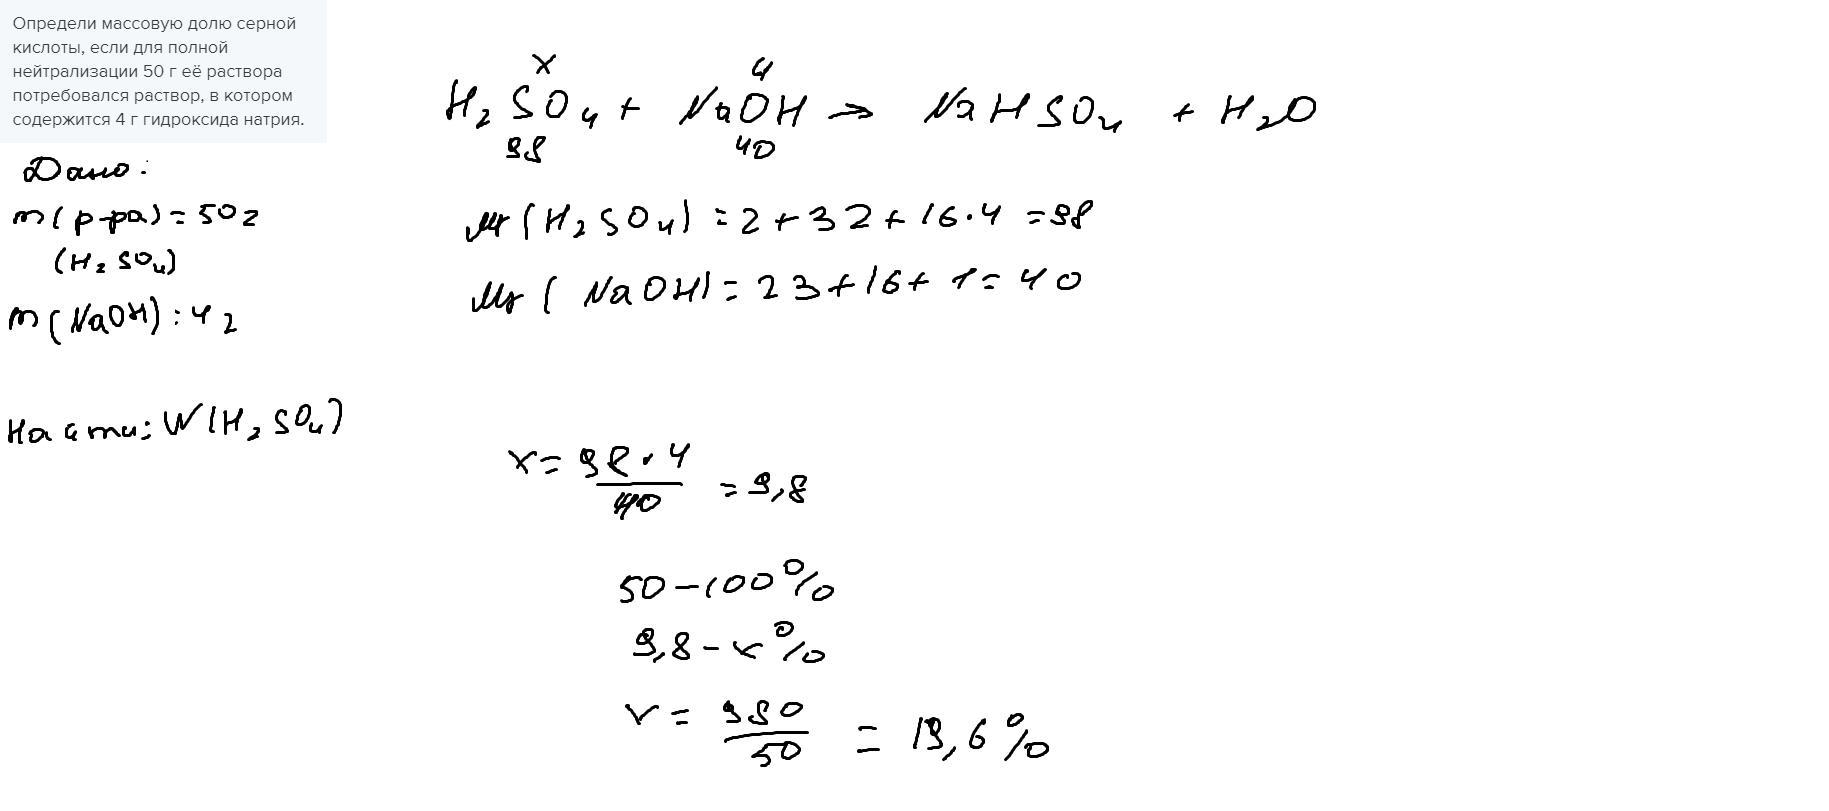 Определи массовую долю серной
кислоты, если для полной
нейтрализации 50 г её раствора
потребовался раствор, в котором
содержится 4 г гидроксида натрия.
x 4
H₂SO₄ + NaOH → NaHSO₄ + H₂O
98 40
Дано:
m(р-ра) = 50г
(H₂SO₄)
m(NaOH) : 4г
Mr (H₂SO₄) = 2 + 32 + 16·4 = 98
Mr (NaOH) = 23 + 16 + 1 = 40
Найти: W(H₂SO₄)
x = 98·4/40 = 9,8
50 – 100%
9,8 – x%
x = 980/50 = 19,6%